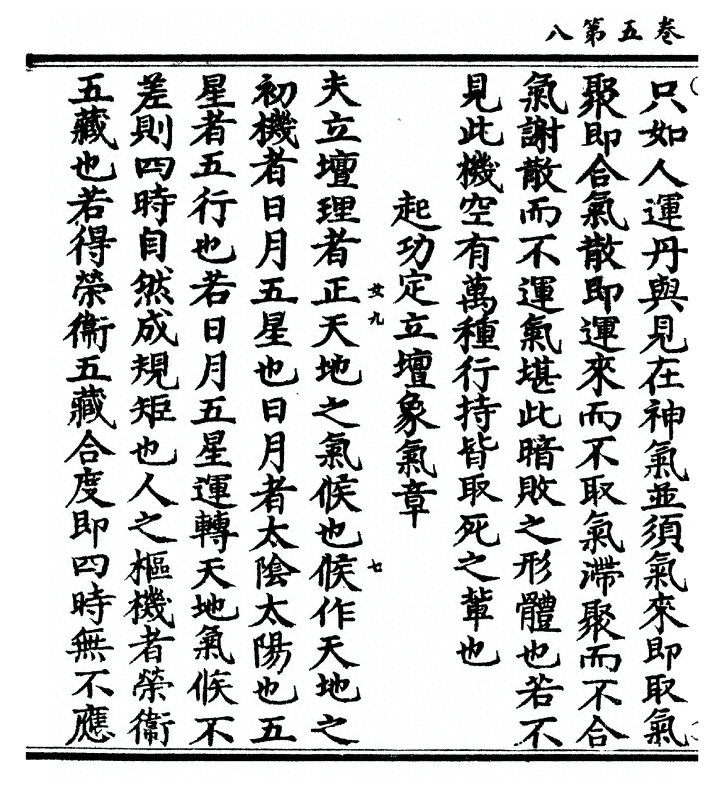 卷五第八
只如人運丹與見在神氣並須氣來即取氣
聚即合氣散即運來而不取氣滯聚而不合
氣謝散而不運氣堪此暗敗之形體也若不
見此機空有萬種行持皆取死之輩也
起功定立壇象氣章
夫立壇理者正天地之氣候也候作天地之
初機者日月五星也日月者太陰太陽也五
星者五行也若日月五星運轉天地氣候不
差則四時自然成規矩也人之樞機者榮衛
五藏也若得榮衛五藏合度即四時無不應
九
七